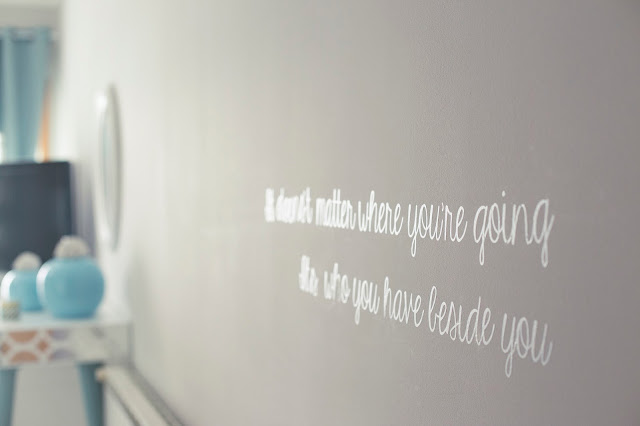 It doesn't matter where you're going
it's who you have beside you